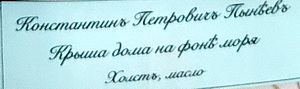 Константинъ Петровичъ Пынѣевъ
Крыша дома на фонѣ моря
Холстъ, масло